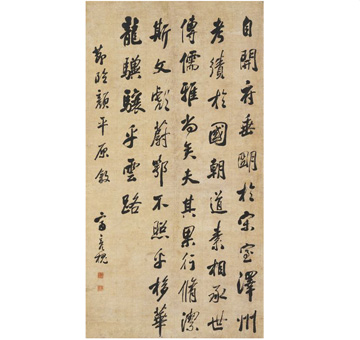 自開府垂明於宋室澤州
考績於國朝道素相承世
傳儒雅尚矣夫其果行脩潔
斯文彪蔚鄂不照乎移華
龍驤驤乎雲路
節臨顏平原敘